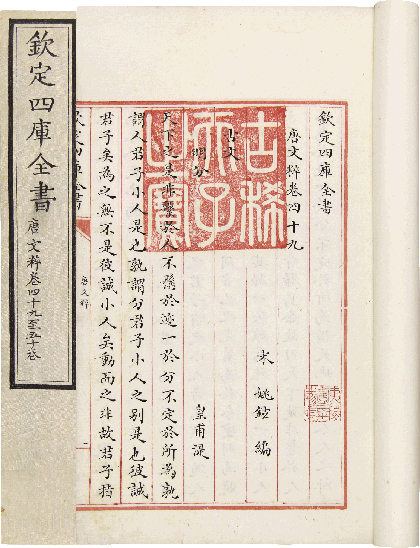 欽定四庫全書
唐文粹卷四十九至五十卷
欽定四庫全書
唐文粹卷四十九
宋 姚鉉 編
古文
明分 皇甫湜
天下之是非繫於人不懸於迹一於分不定於所為孰
謂人君子小人是也孰謂分君子小人之別是也彼誠
君子矣為之無不是彼誠小人矣動而之非故君子指
欽定四庫全書
唐文粹
古稀
天子
之寶